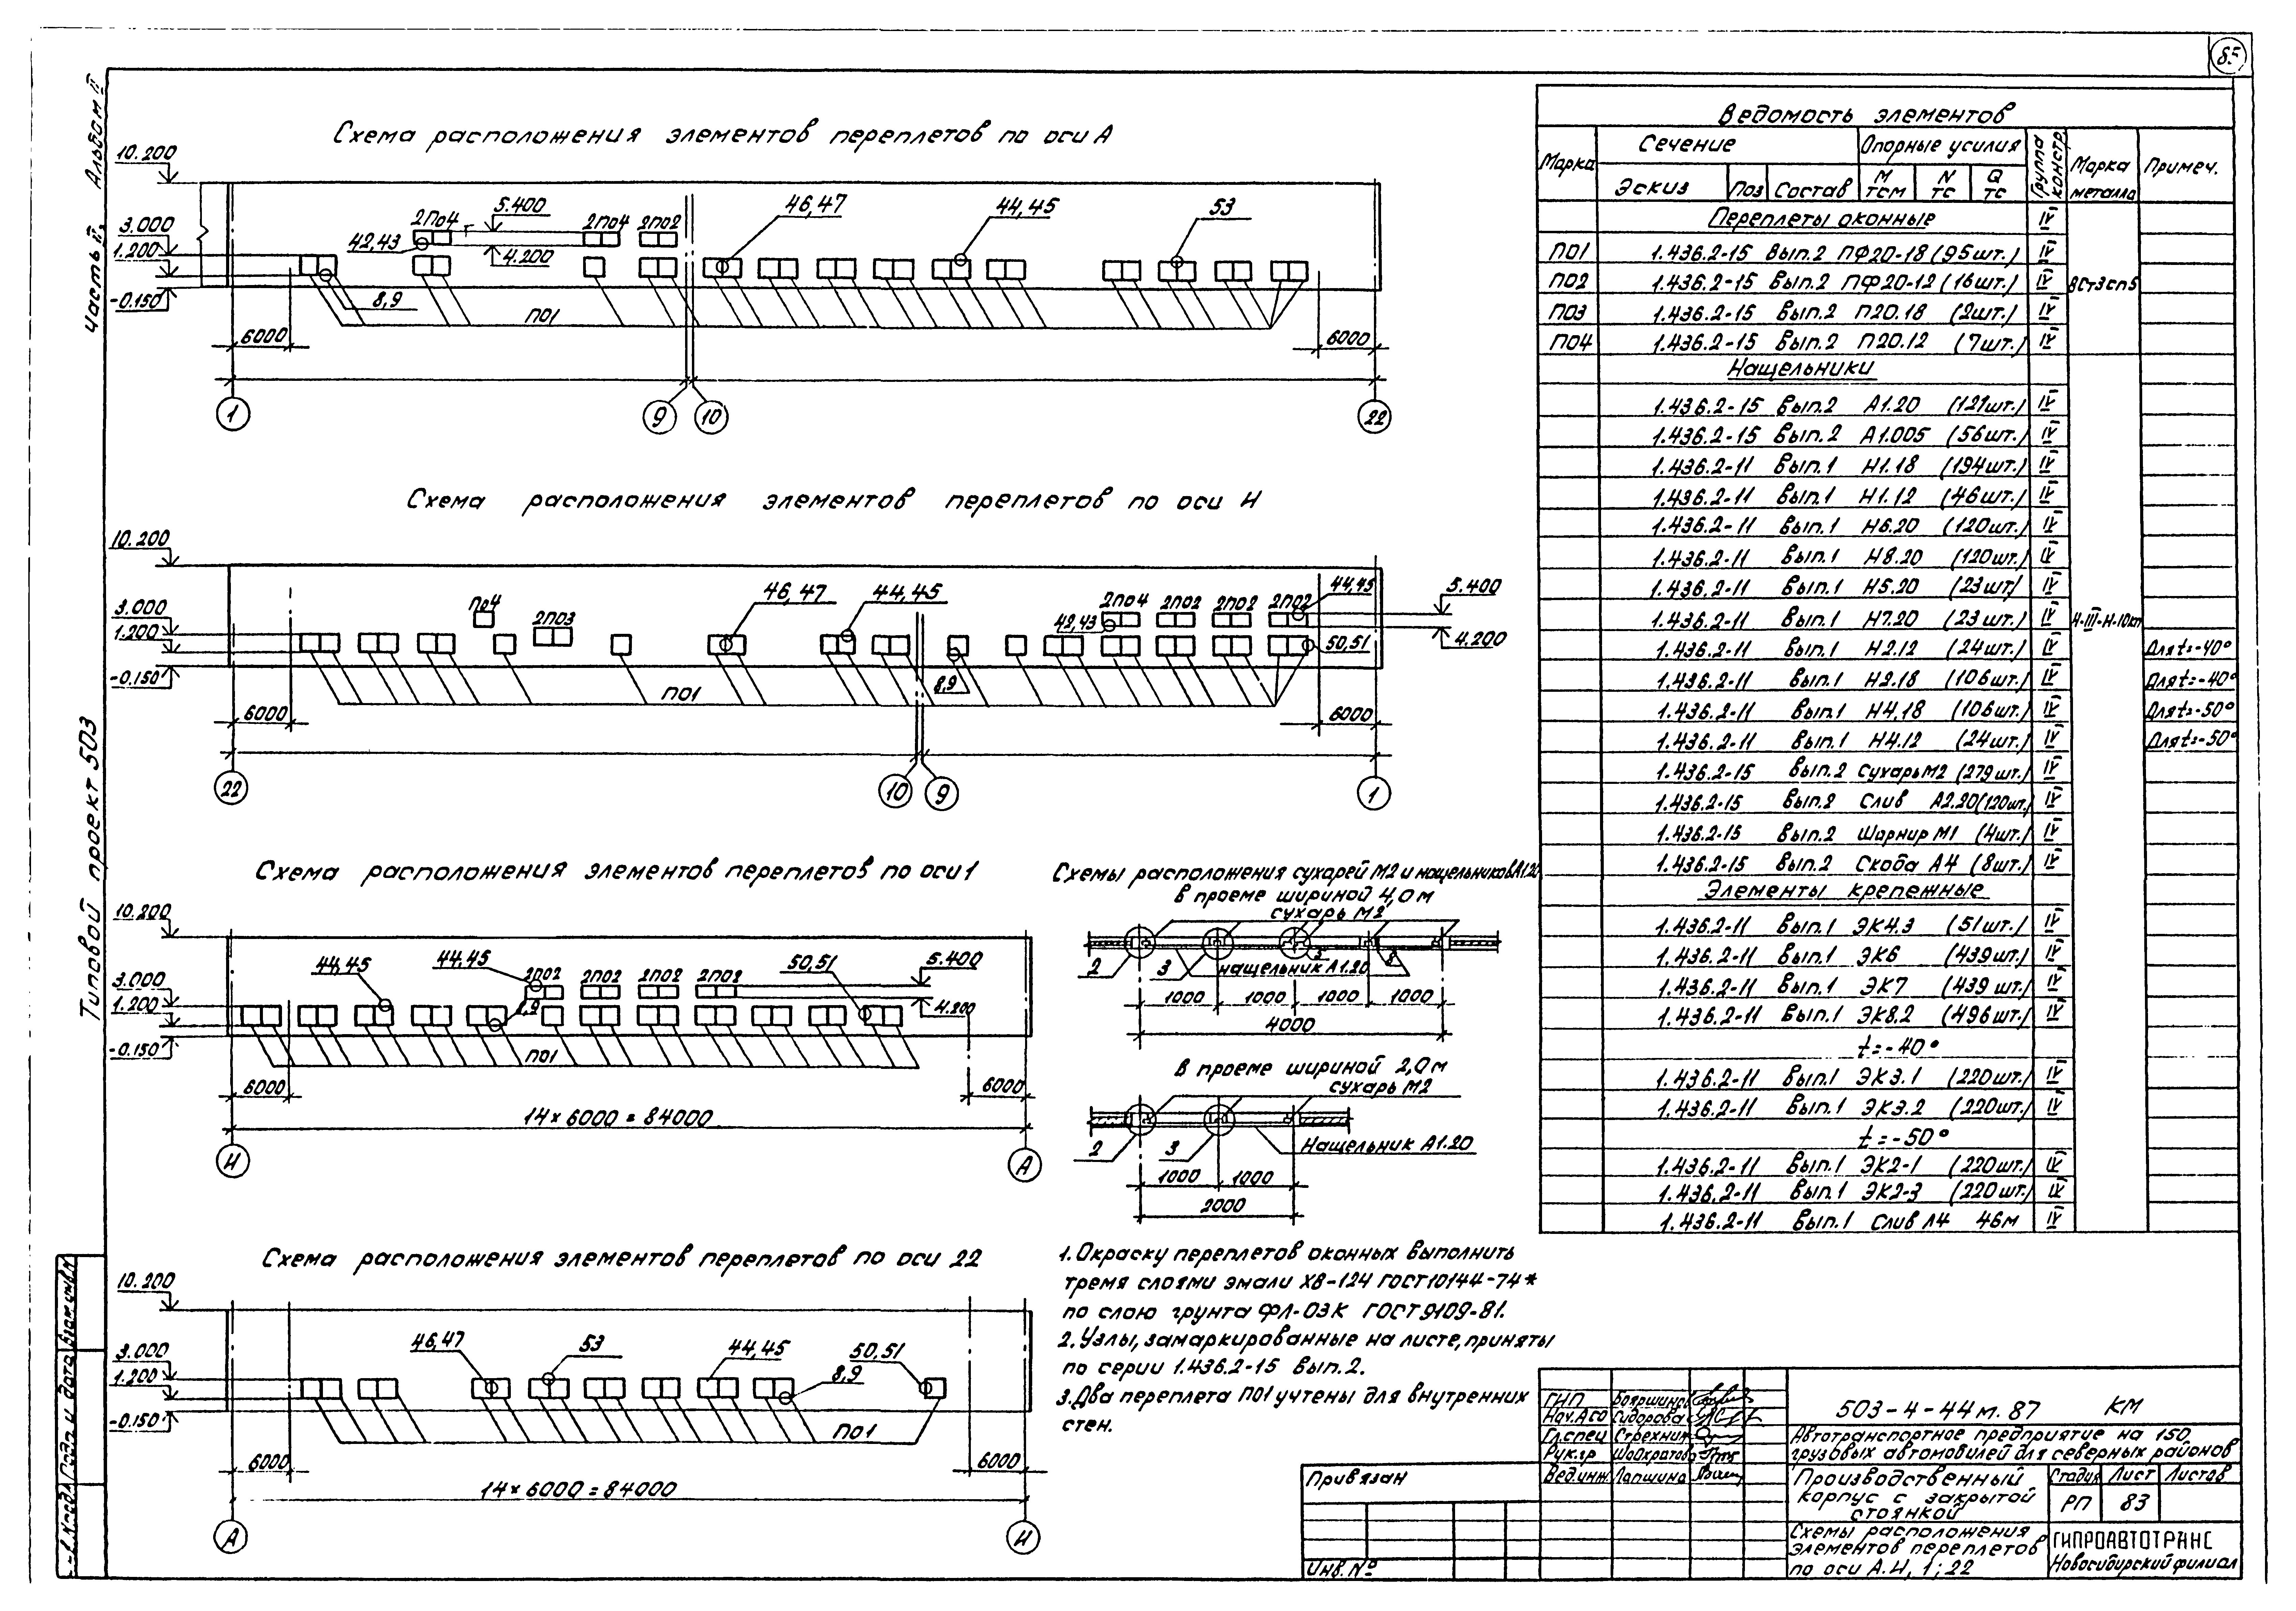 85
Альбом II
Часть II
Типовой проект 503
Схема расположения элементов переплетов по оси А
10.200
3.000
1.200
-0.150
2ПО4
5.400
2ПО4 2ПО2
46,47
44,45
53
42,43
4.200
8,9
ПО1
6000
6000
1
9
10
22
Схема расположения элементов переплетов по оси И
10.200
3.000
1.200
-0.150
ПО4
2ПО3
46,47
44,45
2ПО4 2ПО2 2ПО2 2ПО2
44,45
5.400
42,43
4.200
50,51
8,9
ПО1
6000
6000
22
10
9
1
Схема расположения элементов переплетов по оси 1
10.200
3.000
1.200
-0.150
44,45
44,45
2ПО2 2ПО2 2ПО2 2ПО2
50,51
5.400
8,9
4.200
ПО1
6000
6000
14×6000=84000
И
А
Схема расположения элементов переплетов по оси 22
10.200
3.000
1.200
-0.150
46,47
53
44,45
50,51
8,9
ПО1
6000
6000
14×6000=84000
А
И
Схемы расположения сухарей М2 и нащельников А1.20
в проеме шириной 4,0м
сухарь М2
2
3
нащельник А1.20
1000 1000 1000 1000
4000
в проеме шириной 2,0м
сухарь М2
2
3
Нащельник А1.20
1000 1000
2000
1. Окраску переплетов оконных выполнить
тремя слоями эмали ХВ-124 ГОСТ10144-74*
по слою грунта ФЛ-03К ГОСТ9109-81.
2. Узлы, замаркированные на листе, приняты
по серии 1.436.2-15 вып.2.
3. Два переплета ПО1 учтены для внутренних
стен.
Ведомость элементов
Марка Сечение Опорные усилия Группа констр. Марка металла Примеч.
Эскиз Поз Состав М тсм N тс Q тс
Переплеты оконные IV
ПО1 1.436.2-15 вып.2 ПФ20-18 (95шт.) IV
ПО2 1.436.2-15 вып.2 ПФ20-12 (16шт.) IV ВСт3сп5
ПО3 1.436.2-15 вып.2 П20.18 (2шт.) IV
ПО4 1.436.2-15 вып.2 П20.12 (7шт.) IV
Нащельники
1.436.2-15 вып.2 А1.20 (121шт.) IV
1.436.2-15 вып.2 А1.005 (56шт.) IV
1.436.2-11 вып.1 Н1.18 (194шт.) IV
1.436.2-11 вып.1 Н1.12 (46шт.) IV
1.436.2-11 вып.1 Н6.20 (120шт.) IV
1.436.2-11 вып.1 Н8.20 (120шт.) IV
1.436.2-11 вып.1 Н5.20 (23шт) IV
1.436.2-11 вып.1 Н7.20 (23шт.) IV 4-III-Н-10кп
1.436.2-11 вып.1 Н2.12 (24шт.) IV Для t=-40°
1.436.2-11 вып.1 Н2.18 (106шт.) IV Для t=-40°
1.436.2-11 вып.1 Н4.18 (106шт.) IV Для t=-50°
1.436.2-11 вып.1 Н4.12 (24шт.) IV Для t=-50°
1.436.2-15 вып.2 Сухарь М2 (279шт.) IV
1.436.2-15 вып.2 Слив А2.20 (120шт.) IV
1.436.2-15 вып.2 Шарнир М1 (4шт.) IV
1.436.2-15 вып.2 Скоба А4 (8шт.) IV
Элементы крепежные
1.436.2-11 вып.1 ЭК4.3 (51шт.) IV
1.436.2-11 вып.1 ЭК6 (439шт.) IV
1.436.2-11 вып.1 ЭК7 (439шт.) IV
1.436.2-11 вып.1 ЭК8.2 (496шт.) IV
t=-40°
1.436.2-11 вып.1 ЭК3.1 (220шт.) IV
1.436.2-11 вып.1 ЭК3.2 (220шт.) IV
t=-50°
1.436.2-11 вып.1 ЭК2-1 (220шт.) IV
1.436.2-11 вып.1 ЭК2-3 (220шт.) IV
1.436.2-11 вып.1 Слив А4 46м IV
ГИП Бояршинов
Нач.АСО Сидорова
Гл.спец Стрехнин
Рук.гр
Вед.инж. Лапшина
503-4-44м.87 КМ
Автотранспортное предприятие на 150
грузовых автомобилей для северных районов
Производственный
корпус с закрытой
стоянкой
Стадия Лист Листов
РП 83
Схемы расположения
элементов переплетов
по оси А.И, 1; 22
ГИПРОАВТОТРАНС
Новосибирский филиал
Привязан
Инв.№
Подп. и дата